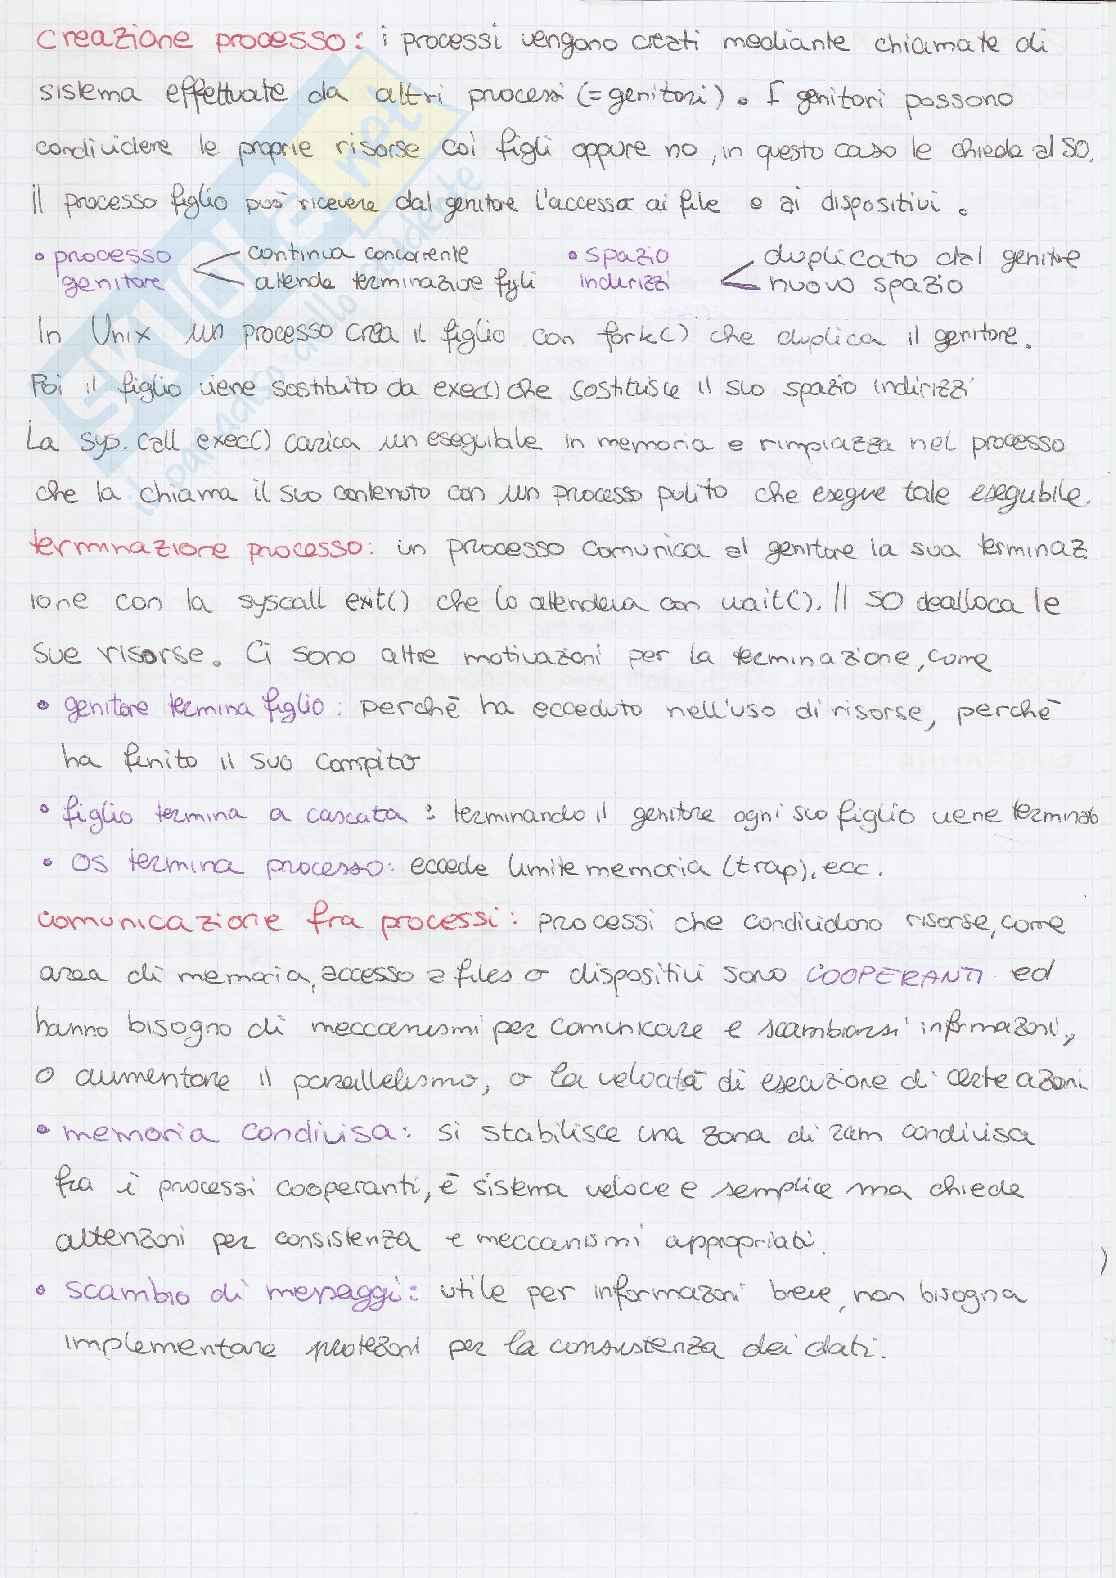 creazione processo: i processi vengono creati mediante chiamate di
sistema effettuate da altri processi (= genitori). I genitori possono
condividere le proprie risorse coi figli oppure no, in questo caso le chiede al SO.
Il processo figlio può ricevere dal genitore l'accesso ai file o ai dispositivi.
• processo genitore < continua concorrente
attende terminazione figli
• spazio indirizzi < duplicato dal genitore
nuovo spazio
In Unix un processo crea il figlio con fork() che duplica il genitore.
Poi il figlio viene sostituito da exec() che sostituisce il suo spazio indirizzi
La sys. call exec() carica un eseguibile in memoria e rimpiazza nel processo
che la chiama il suo contenuto con un processo pulito che esegue tale eseguibile.
terminazione processo: un processo comunica al genitore la sua terminaz
ione con la syscall exit() che lo attendeva con wait(). Il SO dealloca le
sue risorse. Ci sono altre motivazioni per la terminazione, come
• genitore termina figlio: perchè ha ecceduto nell'uso di risorse, perchè
ha finito il suo compito
• figlio termina a cascata: terminando il genitore ogni suo figlio viene terminato
• OS termina processo: eccede limite memoria (trap), ecc.
comunicazione fra processi: processi che condividono risorse, come
area di memoria, accesso a files o dispositivi sono COOPERANTI ed
hanno bisogno di meccanismi per comunicare e scambiarsi informazioni,
o aumentare il parallelismo, o la velocità di esecuzione di certe azioni.
• memoria condivisa: si stabilisce una zona di ram condivisa
fra i processi cooperanti, è sistema veloce e semplice ma chiede
attenzioni per consistenza e meccanismi appropriati.
• scambio di messaggi: utile per informazioni breve, non bisogna
implementare protezioni per la consistenza dei dati.
SKUOLA.net